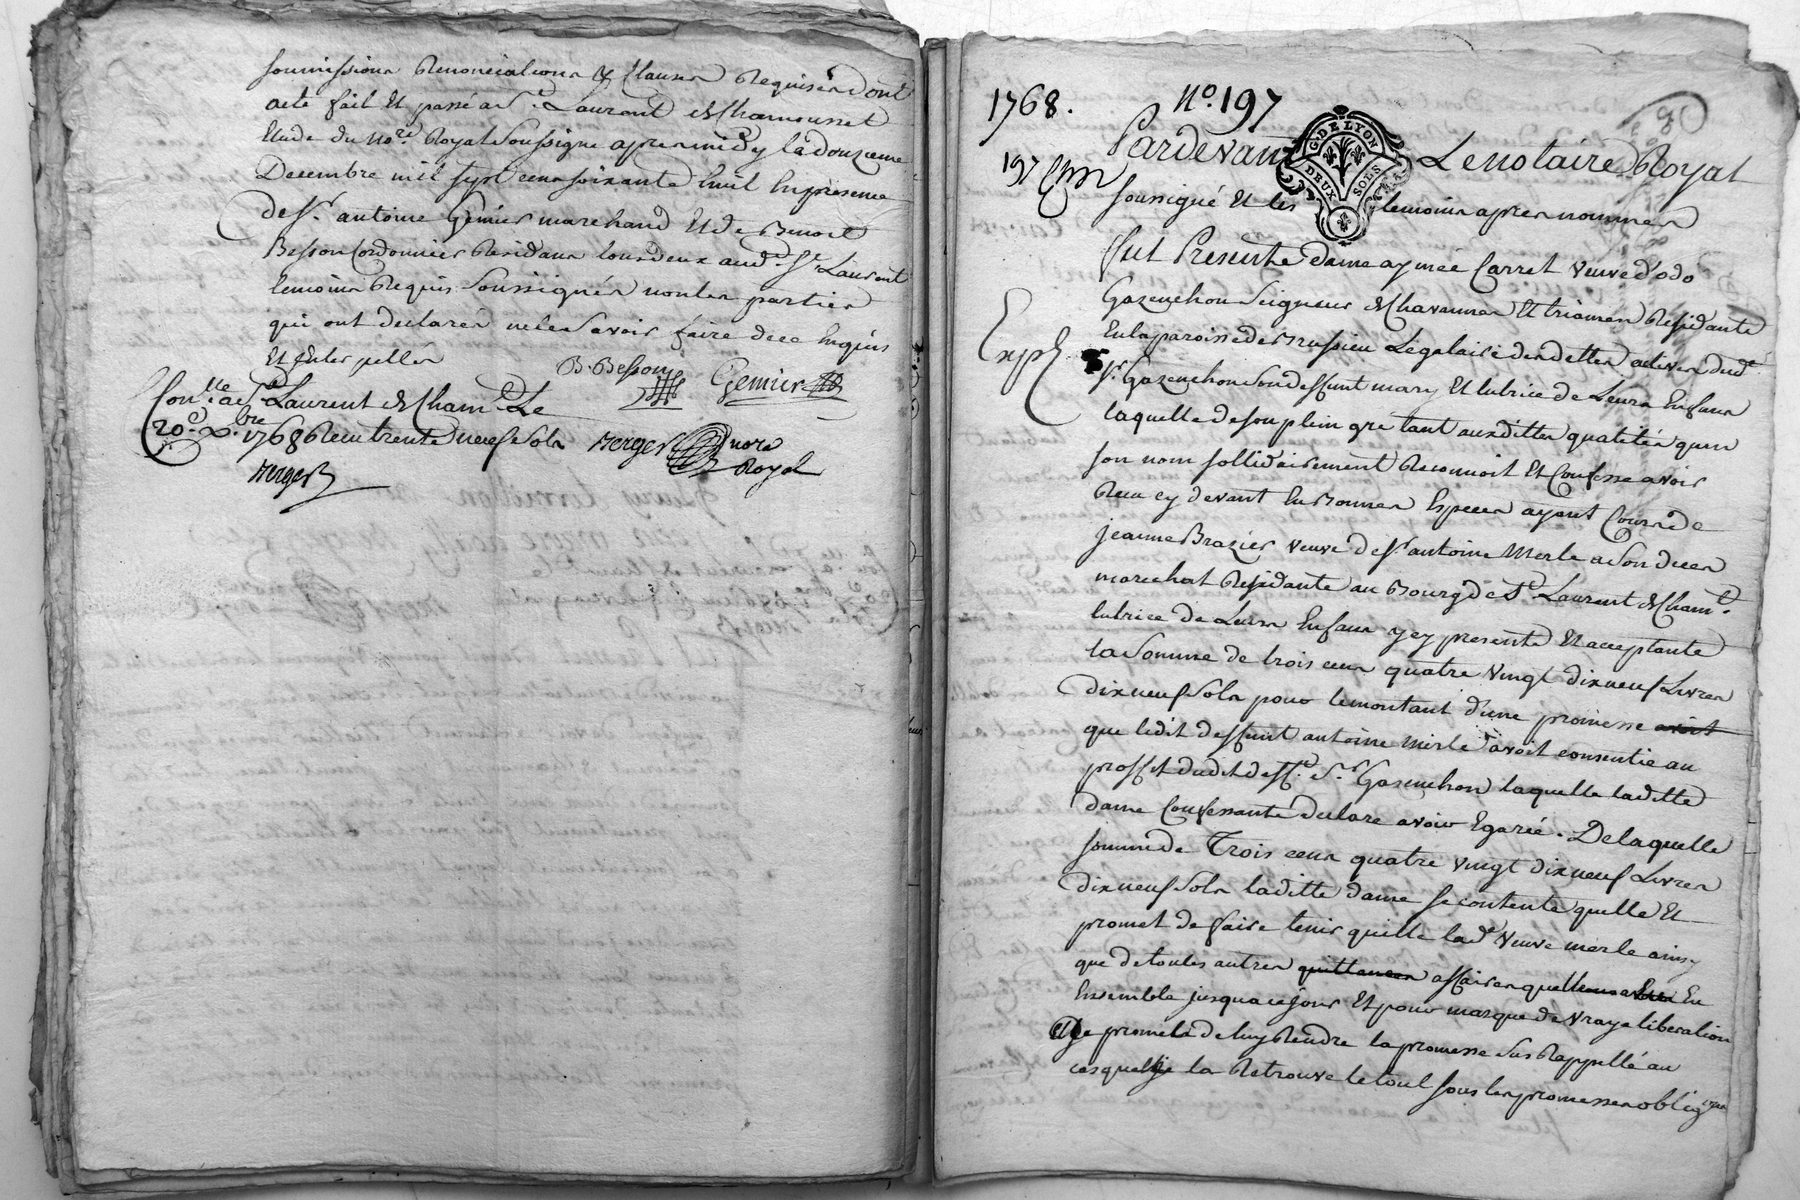 soumissions Renonciations & Clauses Requises dont
acte fait et passé a St. Laurent de Chamousset
Etude du nore. Royal soussigné apres midy le douzeme
Decembre mil sept cens soixante huit En presence
de Sr. antoine Gemier marchand Et de Benoit
Besson Cordonnier Residans tous deux aud. St. Laurent
temoins Requis soussignés non les parties
qui ont declarés ne le savoir faire de ce Enquis
Et Interpellés
B. Besson Gemier
Conlle. a St. Laurent de Cham.t Le
20e. xbre 1768 Reçu trente neuf sols
Verger nore
Royal
Verger
1768. No. 197
197
G. DE LYON
DEUX SOLS
Pardevant Le notaire Royal
soussigné Et les temoins apres nommés
fut Presente dame aymée Carret veuve d'odo
Gazenchon Seigneur de Chavannes Et Residante
En la paroisse de Brussieu Legataire des dettes actives dud.
Expé
Sr. Gazenchon son deffunt mary Et tutrice de Leurs Enfans
laquelle de son plein gré tant auxdittes qualités qu'en
son nom sollidairement Reconnoit Et Confesse avoir
Reçu cy devant En Bonnes Especes ayant Cours de
jeanne Brazier veuve de Sr. antoine Merle a son deces
marechal Residante au Bourg de St. Laurent de Cham.t
tutrice de Leurs Enfans y cy presente Et acceptante
la somme de trois cens quatre vingt dixneuf Livres
dixneuf sols pour le montant d'une promesse avoit
que ledit deffunt antoine Merle avoit consentie au
proffit dudit deff. Sr. Gazenchon laquelle laditte
dame Confessante declare avoir Egarée. De laquelle
somme de Trois cens quatre vingt dixneuf Livres
dixneuf sols laditte dame se contente quitte Et
promet de faire tenir quitte lade. veuve merle ainsy
que de toutes autres quittances affaires quelles En
Ensemble jusqua ce jour Et pour marque de vraye liberation
promet de luy Rendre la promesse sus Rappellé au
cas quelle la Retrouve le tout sous les promesses oblig